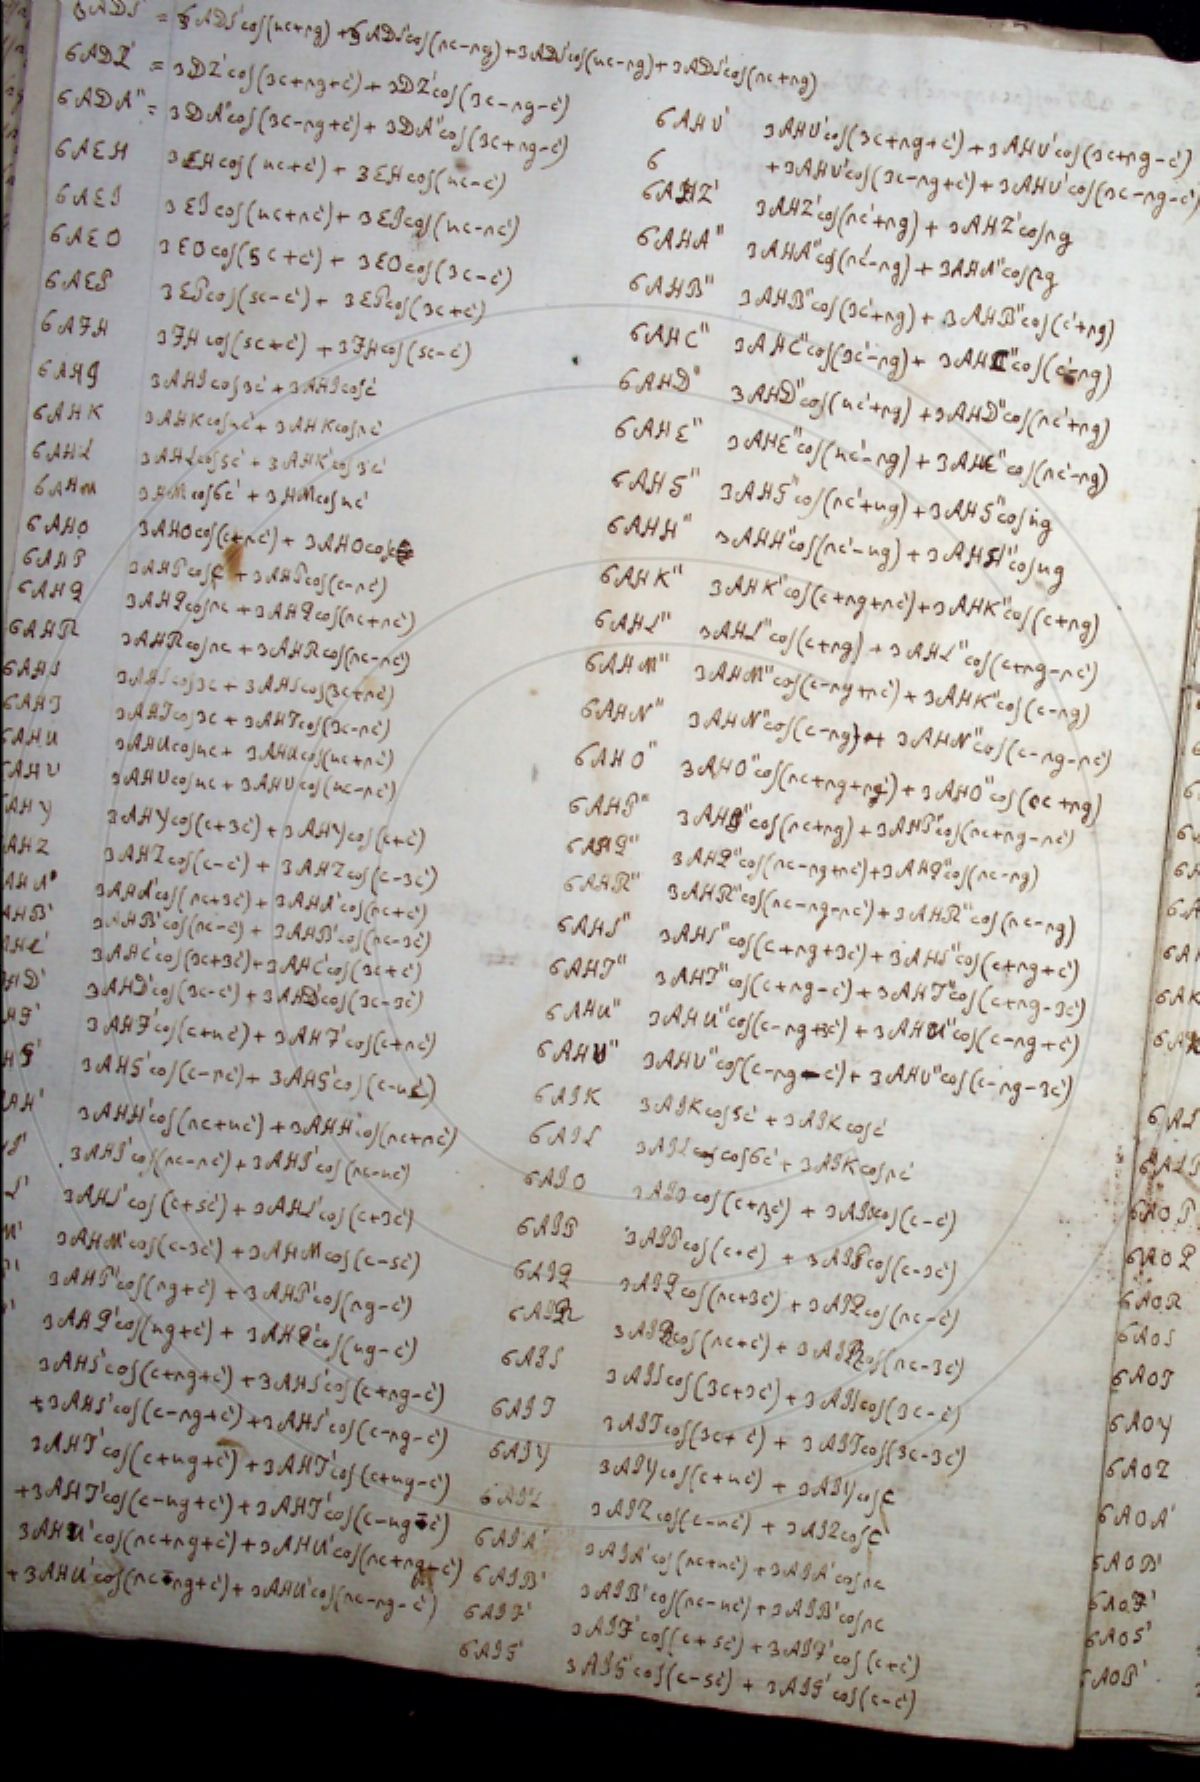 6ADZ' = 3DZ'cos(3c+ng+c') + 3DZ'cos(3c-ng-c')
6ADA" = 3DA"cos(3c-ng+c') + 3DA"cos(3c+ng-c')
6AEH 3EHcos(uc+c') + 3EHcos(uc-c')
6AEI 3EIcos(uc+nc') + 3EIcos(uc-nc')
6AEO 3EOcos(5c+c') + 3EOcos(3c-c')
6AEP 3EPcos(5c-c') + 3EPcos(3c+c')
6AFH 3FHcos(5c+c') + 3FHcos(5c-c')
6AHI 3AHIcos3c' + 3AHIcosc'
6AHK 3AHKcosuc' + 3AHKcosnc'
6AHL 3AHLcos5c' + 3AHK'cos3c'
6AHM 3HMcos6c' + 3HMcosuc'
6AHO 3AHOcos(c+nc') + 3AHOcosc
6AHP 3AHPcosc + 3AHPcos(c-nc')
6AHQ 3AHQcosnc + 3AHQcos(nc+nc')
6AHR 3AHRcosnc + 3AHRcos(nc-nc')
6AHS 3AHScos3c + 3AHScos(3c+nc')
6AHT 3AHTcos3c + 3AHTcos(3c-nc')
6AHU 3AHUcosuc + 3AHUcos(uc+nc')
6AHV 3AHVcosuc + 3AHVcos(uc-nc')
AHY 3AHYcos(c+3c') + 3AHYcos(c+c')
AHZ 3AHZcos(c-c') + 3AHZcos(c-3c')
AHA' 3AHA'cos(nc+3c') + 3AHA'cos(nc+c')
AHB' 3AHB'cos(nc-c') + 3AHB'cos(nc-3c')
AHC' 3AHC'cos(3c+3c') + 3AHC'cos(3c+c')
HD' 3AHD'cos(3c-c') + 3AHD'cos(3c-3c')
HF' 3AHF'cos(c+uc') + 3AHF'cos(c+nc')
HG' 3AHG'cos(c-nc') + 3AHG'cos(c-uc')
AH' 3AHH'cos(nc+uc') + 3AHH'cos(nc+nc')
3AHI'cos(nc-nc') + 3AHI'cos(nc-uc')
L' 3AHL'cos(c+5c') + 3AHL'cos(c+3c')
M' 3AHM'cos(c-3c') + 3AHMcos(c-5c')
3AHP'cos(ng+c') + 3AHP'cos(ng-c')
3AHQ'cos(ug+c') + 3AHQ'cos(ug-c')
3AHS'cos(c+ng+c') + 3AHS'cos(c+ng-c')
+3AHS'cos(c-ng+c') + 3AHS'cos(c-ng-c')
3AHT'cos(c+ug+c') + 3AHT'cos(c+ug-c')
+3AHT'cos(c-ug+c') + 3AHT'cos(c-ug-c')
3AHU'cos(nc+ng+c') + 3AHU'cos(nc+ng-c')
+3AHU'cos(nc-ng+c') + 3AHU'cos(nc-ng-c')
6AHV' 3AHV'cos(3c+ng+c') + 3AHV'cos(3c+ng-c')
6 +3AHV'cos(3c-ng+c') + 3AHV'cos(nc-ng-c')
6AHZ' 3AHZ'cos(nc'+ng) + 3AHZ'cosng
6AHA" 3AHA"cos(nc'-ng) + 3AHA"cosng
6AHB" 3AHB"cos(3c'+ng) + 3AHB"cos(c'+ng)
6AHC" 3AHC"cos(3c'-ng) + 3AHC"cos(c'-ng)
6AHD" 3AHD"cos(uc'+ng) + 3AHD"cos(nc'+ng)
6AHE" 3AHE"cos(uc'-ng) + 3AHE"cos(nc'-ng)
6AHG" 3AHG"cos(nc'+ug) + 3AHG"cosug
6AHH" 3AHH"cos(nc'-ug) + 3AHH"cosug
6AHK" 3AHK"cos(c+ng+nc') + 3AHK"cos(c+ng)
6AHL" 3AHL"cos(c+ng) + 3AHL"cos(c+ng-nc')
6AHM" 3AHM"cos(c-ng+nc') + 3AHK"cos(c-ng)
6AHN" 3AHN"cos(c-ng) + 3AHN"cos(c-ng-nc')
6AHO" 3AHO"cos(nc+ng+ng') + 3AHO"cos(nc+ng)
6AHP" 3AHP"cos(nc+ng) + 3AHP"cos(nc+ng-nc')
6AHQ" 3AHQ"cos(nc-ng+nc') + 3AHQ"cos(nc-ng)
6AHR" 3AHR"cos(nc-ng-nc') + 3AHR"cos(nc-ng)
6AHS" 3AHS"cos(c+ng+3c') + 3AHS"cos(c+ng+c')
6AHT" 3AHT"cos(c+ng-c') + 3AHT"cos(c+ng-3c')
6AHU" 3AHU"cos(c-ng+3c') + 3AHU"cos(c-ng+c')
6AHV" 3AHV"cos(c-ng-c') + 3AHV"cos(c-ng-3c')
6AIK 3AIKcos5c' + 3AIKcosc'
6AIL 3AILcos6c' + 3AIKcosnc'
6AIO 3AIOcos(c+3c') + 3AIOcos(c-c')
6AIP 3AIPcos(c+c') + 3AIPcos(c-3c')
6AIQ 3AIQcos(nc+3c') + 3AIQcos(nc-c')
6AIR 3AIRcos(nc+c') + 3AIRcos(nc-3c')
6AIS 3AIScos(3c+3c') + 3AIScos(3c-c')
6AIT 3AITcos(3c+c') + 3AITcos(3c-3c')
6AIY 3AIYcos(c+uc') + 3AIYcosc
6AIZ 3AIZcos(c-uc') + 3AIZcosc
6AIA' 3AIA'cos(nc+uc') + 3AIA'cosnc
6AIB' 3AIB'cos(nc-uc') + 3AIB'cosnc
6AIF' 3AIF'cos(c+5c') + 3AIF'cos(c+c')
6AIG' 3AIG'cos(c-5c') + 3AIG'cos(c-c')
6AL
6AOP
6AOQ
6AOR
6AOS
6AOT
6AOY
6AOZ
6AOA'
6AOB'
6AOF'
6AOG'